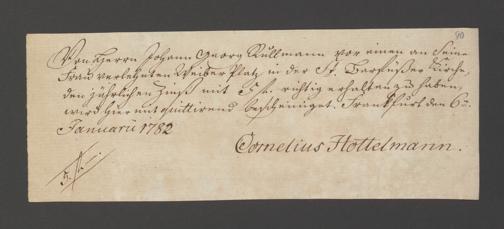 90
Von Herrn Johann Georg Kullmann vor einen an Seine
Frau verlehnten Weiber Platz in der St. Barfüßer Kirche,
den jährlichen Zinß mit 5 f. richtig erhalten zu haben,
wird hiermit quittirend bescheiniget. Franckfurt den 6
Januarii 1782
Cornelius Hottelmann.